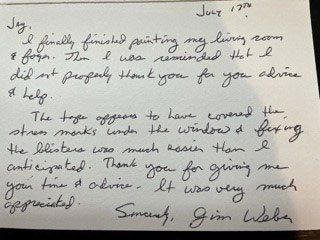 July 17th.
Jay,
I finally finished painting my living room
& foyer. Then I was reminded that I
did not properly thank you for you advice
& help.
The tape appears to have covered the
stress marks under the window & fixing
the blisters was much easier than I
anticipated. Thank you for giving me
your time & advice. It was very much
appreciated.
Sincerely, Jim Weber